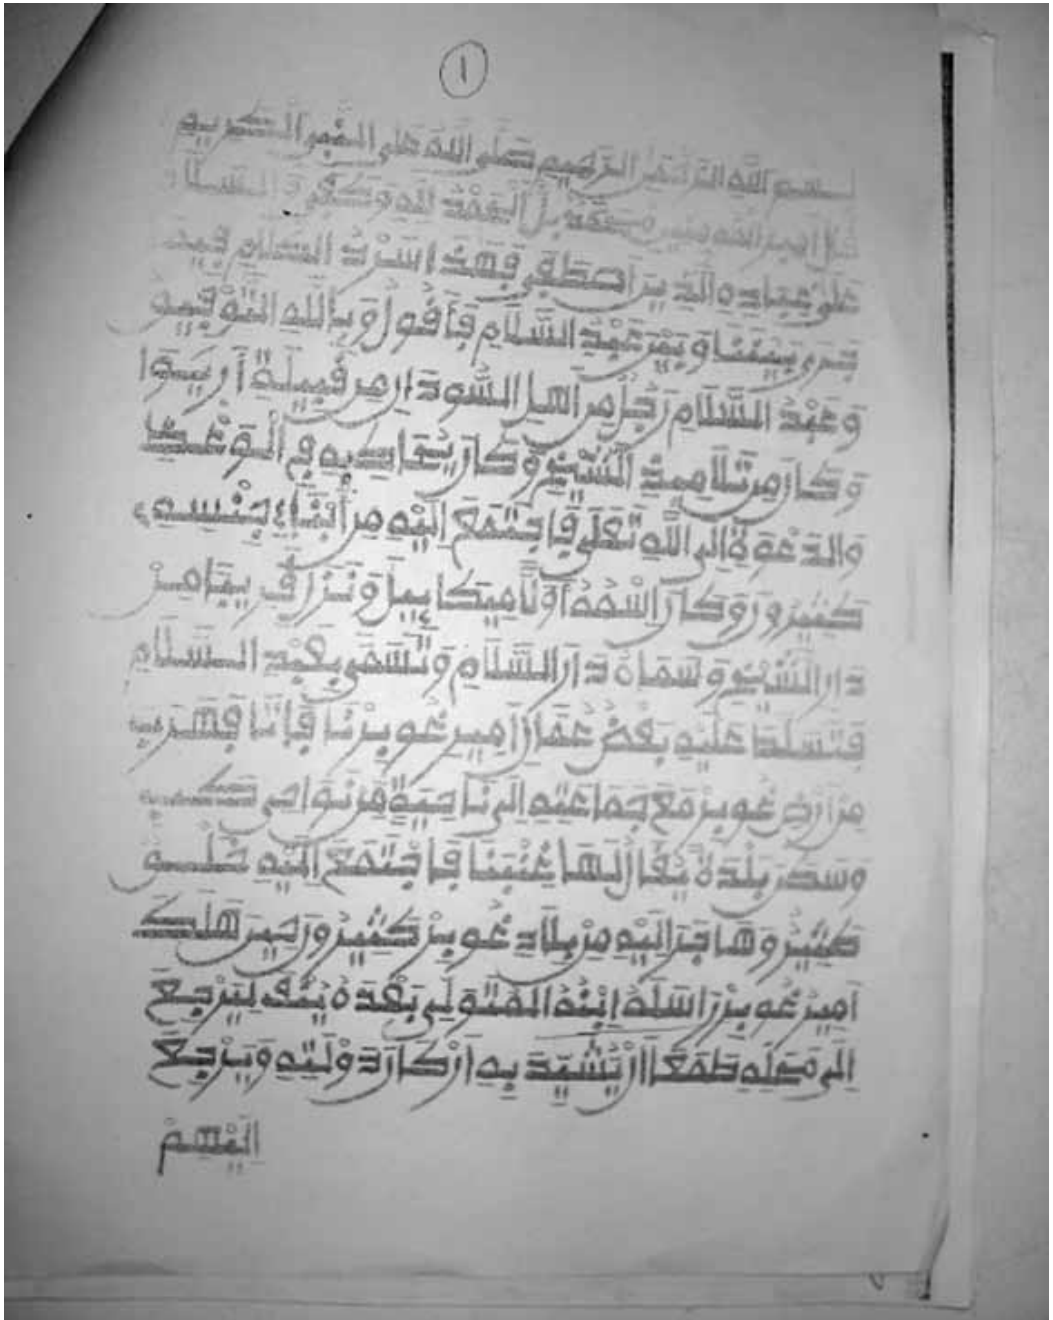 ١
بسم الله الرحمن الرحيم صلى الله على النبي الكريم
قال امير المومنين محمد بل الحمد لله وكفى والسلام
على عباده الذين اصطفى فهذا سرد الكلام فيما
جرى بيننا وبين عبد السلام فأقول وبالله التوفيق
وعبد السلام رجل من أهل السودان من قبيلة أريوا
وكان من تلاميذ الشيخ وكان يحاكيه في الوعظ
والدعوة إلى الله تعلى فاجتمع إليه من أبناء جنسه
كثيرون وكان اسمه أولا ميكاييل ونزل في
دار الشيخ وسماه دار السلام وتسمى بعبد السلام
فتسلط عليه بعض عمال أمير غوبر
من أرض غوبر مع جماعته إلى ناحية من نواحي
وسكن بلدة يقال لها غنبنا فاجتمع اليه خلق
كثير وهاجر إليه من بلاد غوبر كثيرون حين هلك
أمير غوبر راسله ابنه المتولي بعده ينف ليرجع
إلى محله طمعا أن يشيد به أركان دولته ويرجع
اليهم